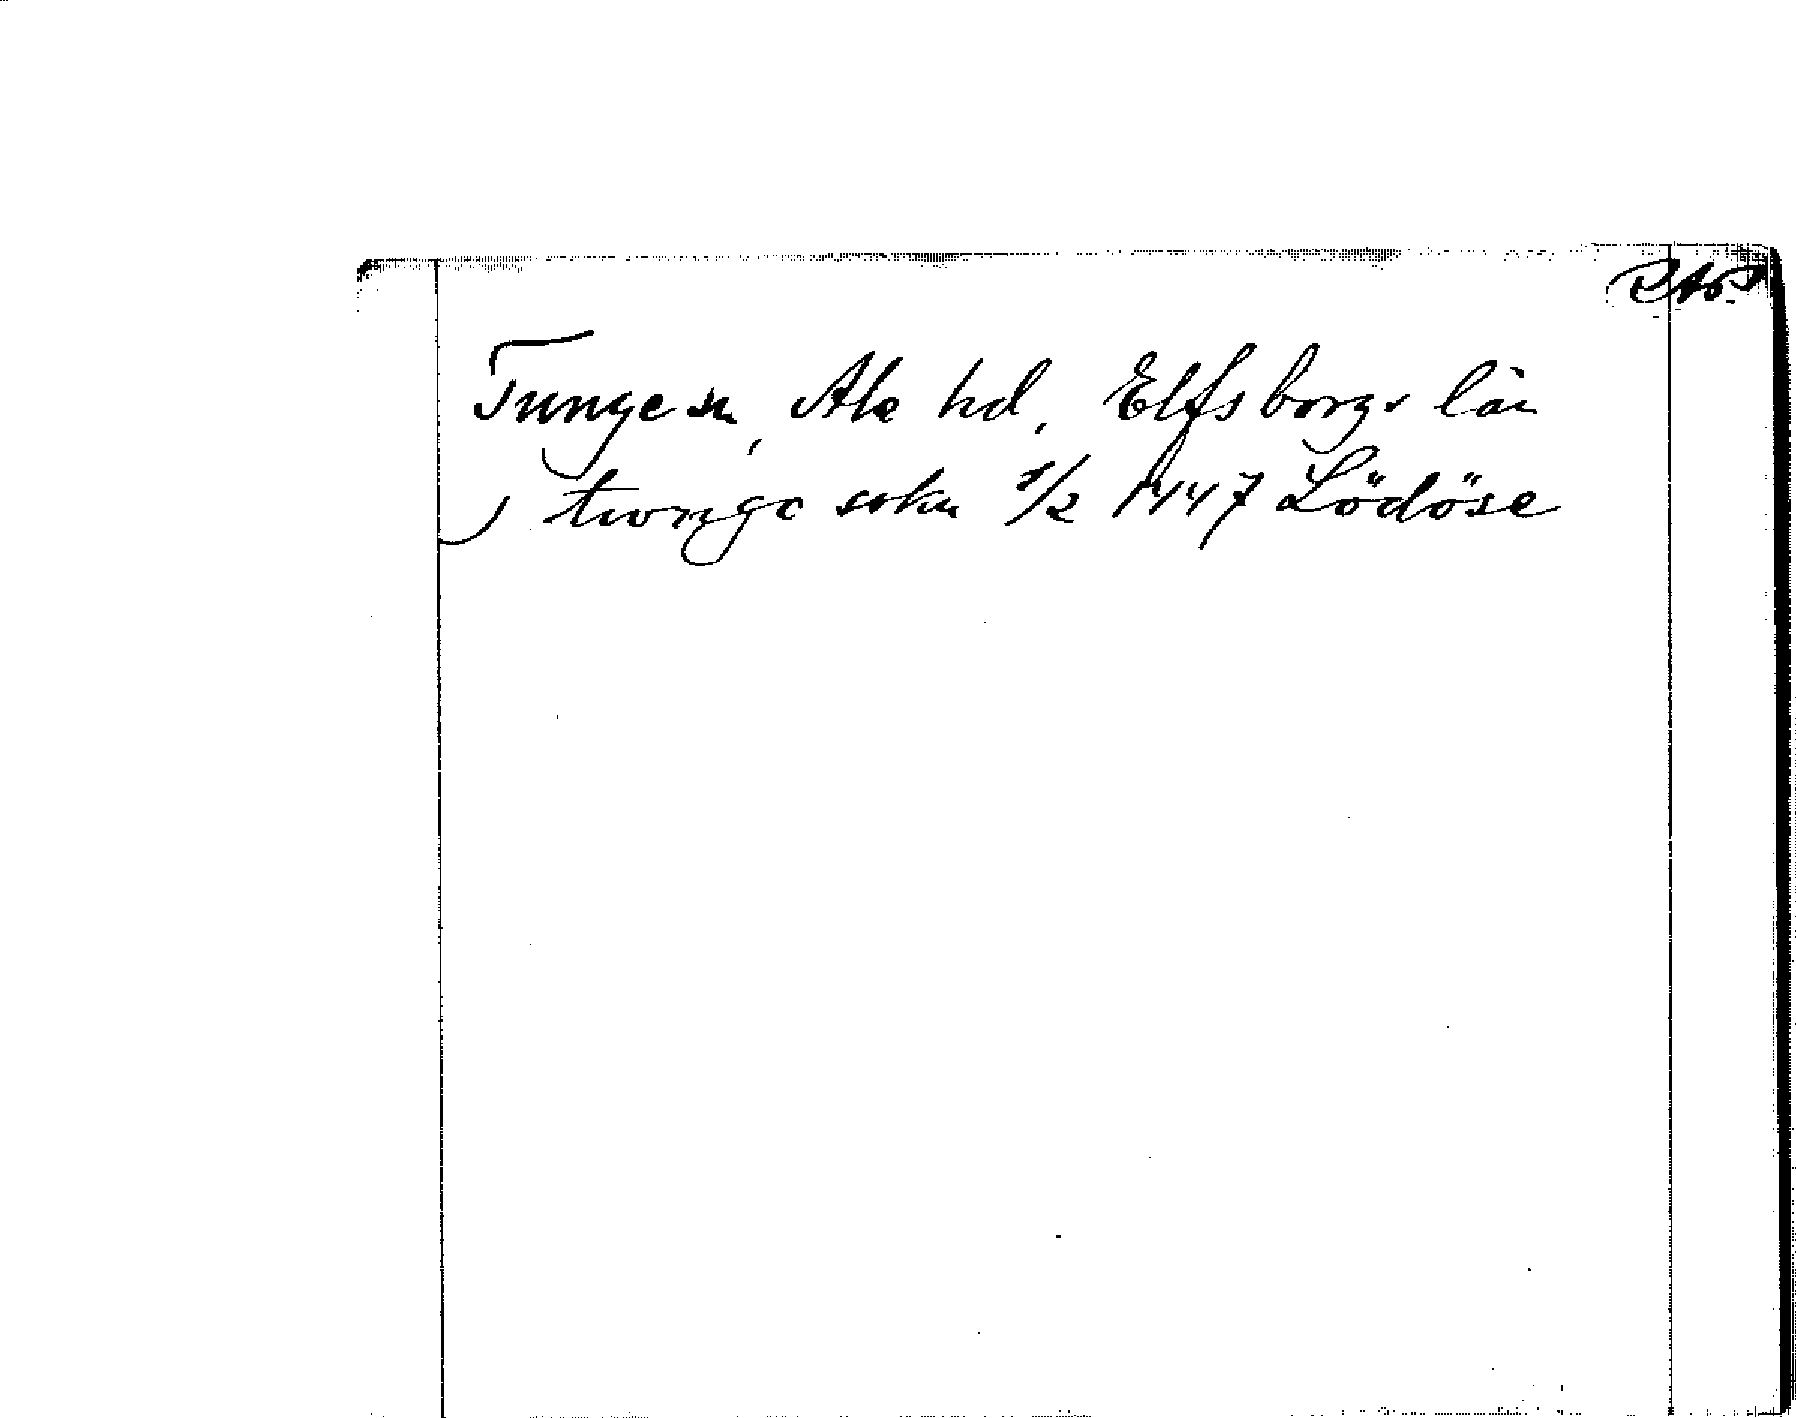 RAp
Tunge sn, Ale hd, Elfsborgs län
j twnge sokn 1/2 1447 Lödöse